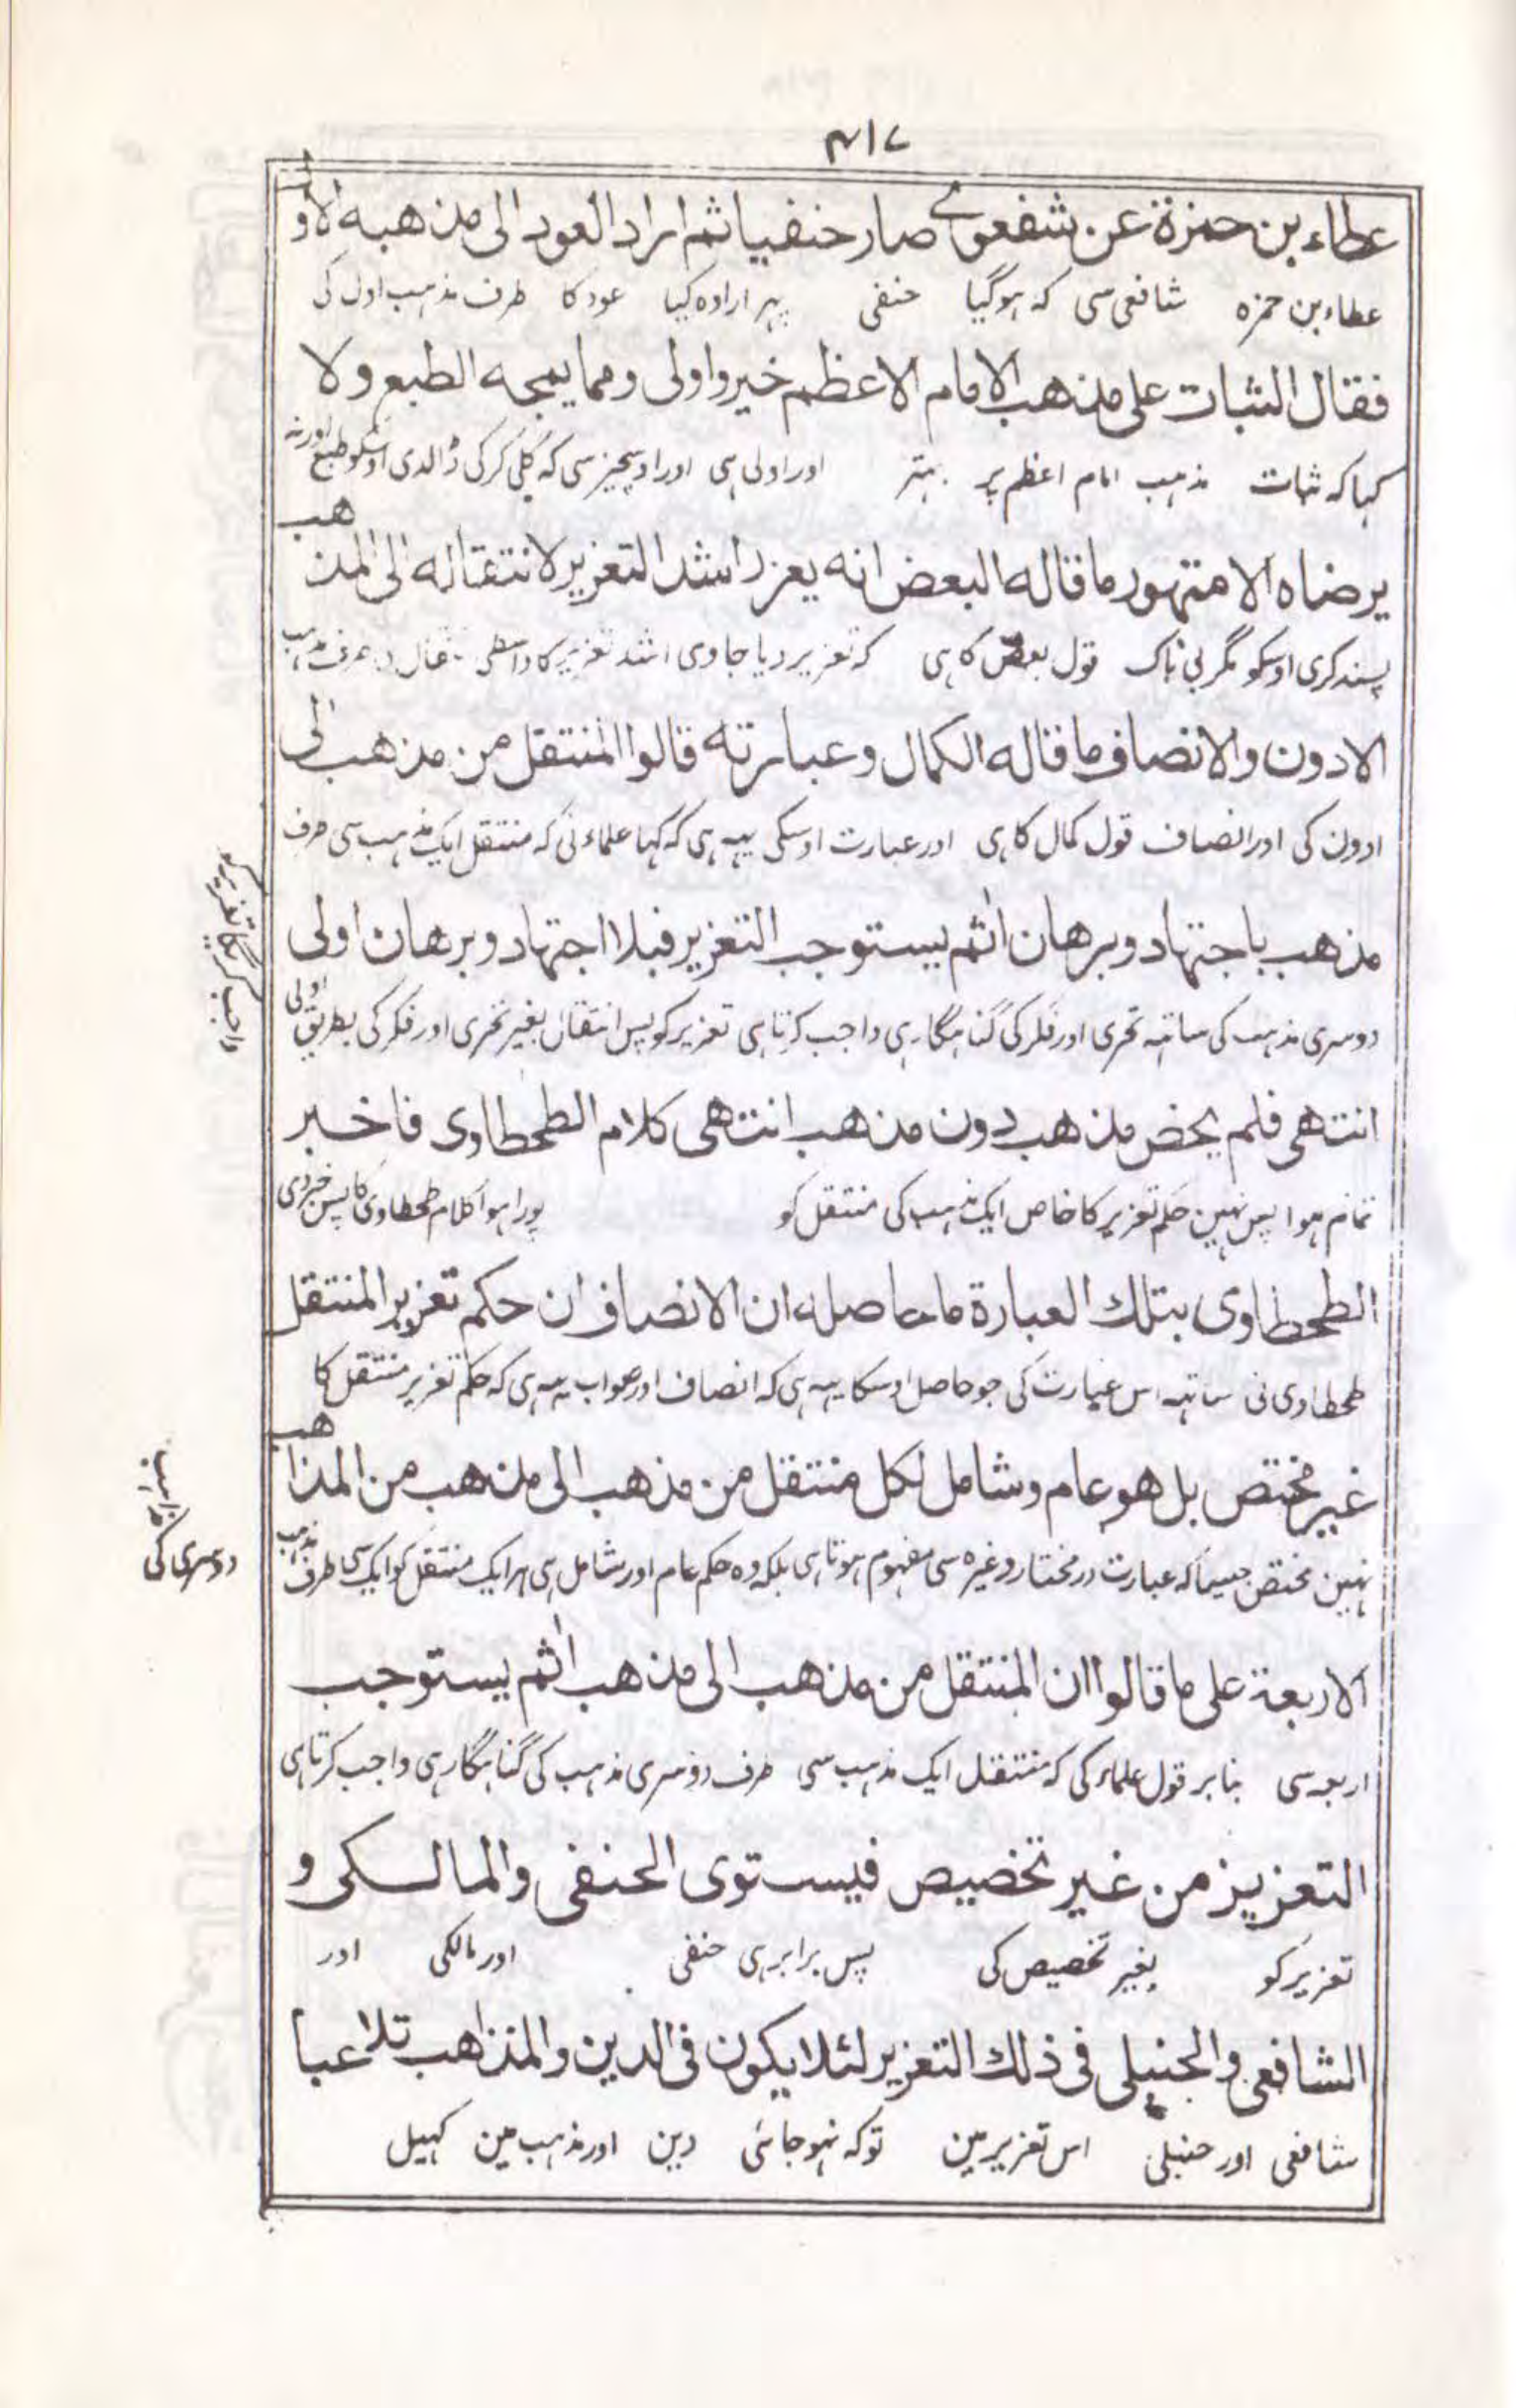 ۴۱۷
عطاء بن حمزة عن شفعوی صار حنفيا ثم اراد العود الى مذهبه الاول
عطاء بن حمزہ شافعی سی کہ ہو گیا حنفی پہر ارادہ کیا عود کا طرف مذہب اول کی
فقال الثبات على مذهب الامام الاعظم خير واولى ومما يمجه الطبع ولا
کہا کہ ثبات مذہب امام اعظم پر بہتر اور اولی ہی اور اوسچیز سی کہ کلی کر کی ڈالدی اوسکو طبع اور نہ
يرضاه الا متهور ما قاله البعض انه يعزر اشد التعزير لانتقاله الى المذهب
پسند کری اوسکو مگر بی باک قول بعض کا ہی کہ تعزیر دیا جاوی اشد تعزیر کا واسطی انتقال طرف مذہب
الادون والانصاف ما قاله الكمال وعبارته قالوا المنتقل من مذهب الى
ادون کی اور انصاف قول کمال کا ہی اور عبارت اوسکی یہہ ہی کہ کہا علماء نی کہ منتقل ایک مذہب سی طرف
مذهب باجتهاد وبرهان اثم يستوجب التعزير فبلا اجتهاد وبرهان اولى
دوسری مذہب کی ساتہہ تحری اور فکر کی گناہگار ہی واجب کرتا ہی تعزیر کو پس انتقال بغیر تحری اور فکر کی بطریق اولی
واجب کریگا تعزیر کو
انتهى فلم يخض مذهب دون مذهب انتهى كلام الطحطاوى فاخبر
تمام ہوا پس نہین حکم تعزیر کا خاص ایک مذہب کی منتقل کو پورا ہوا کلام طحطاوی کا پس خبر دی
الطحطاوى بتلك العبارة ما حاصله ان الانصاف ان حكم تعزير المنتقل
طحطاوی نی ساتہہ اس عبارت کی جو حاصل اوسکا یہہ ہی کہ انصاف اور صواب یہہ ہی کہ حکم تعزیر منتقل کا
غير مختص بل هو عام وشامل لكل منتقل من مذهب الى مذهب من المذاهب
نہین مختص جیسا کہ عبارت در مختار وغیرہ سی مفہوم ہوتا ہی بلکہ وہ حکم عام اور شامل ہی ہر ایک منتقل کو ایک سی طرف مذہب
دوسری کی مذاہب
الاربعة على ما قالوا ان المنتقل من مذهب الى مذهب اثم يستوجب
اربعہ سی بنا بر قول علماء کی کہ منتقل ایک مذہب سی طرف دوسری مذہب کی گناہگار ہی واجب کرتا ہی
التعزيز من غير تخصيص فيستوى الحنفى والمالكى و
تعزیر کو بغیر تخصیص کی پس برابر ہی حنفی اور مالکی اور
الشافعى والحنبلى فى ذلك التعزير لئلا يكون فى الدين والمذاهب تلاعبا
شافعی اور حنبلی اس تعزیر مین تو کہ نہو جائی دین اور مذہب مین کہیل